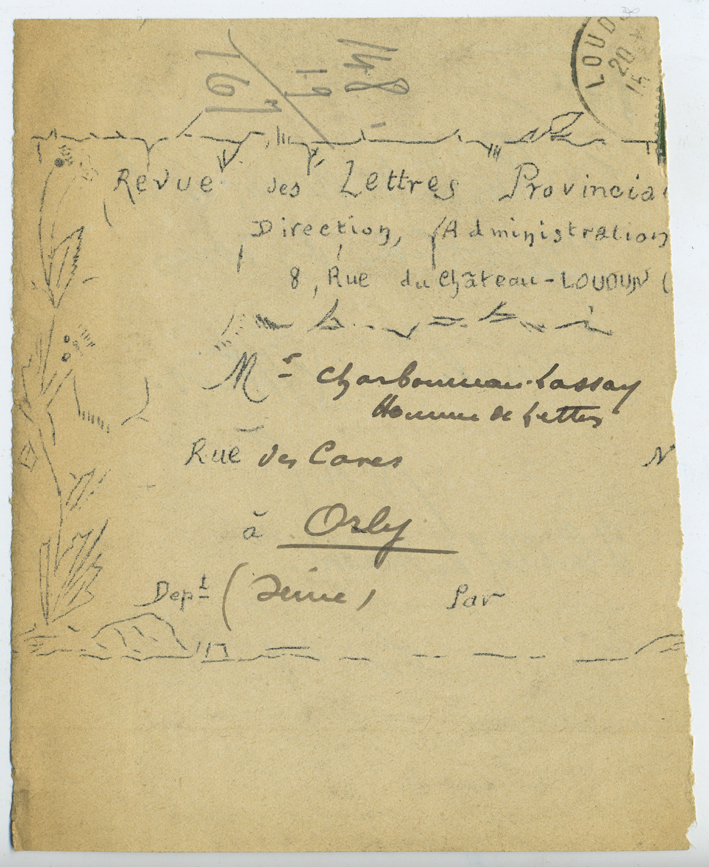 148
19
167
LOUD
20
15
Revue des Lettres Provincia
Direction, Administration
8, Rue du Château - LOUDUN (
Mr Charbonneau-Lassay
Homme de Lettres
Rue des Caves N
à Orly
Dept (Seine) Par